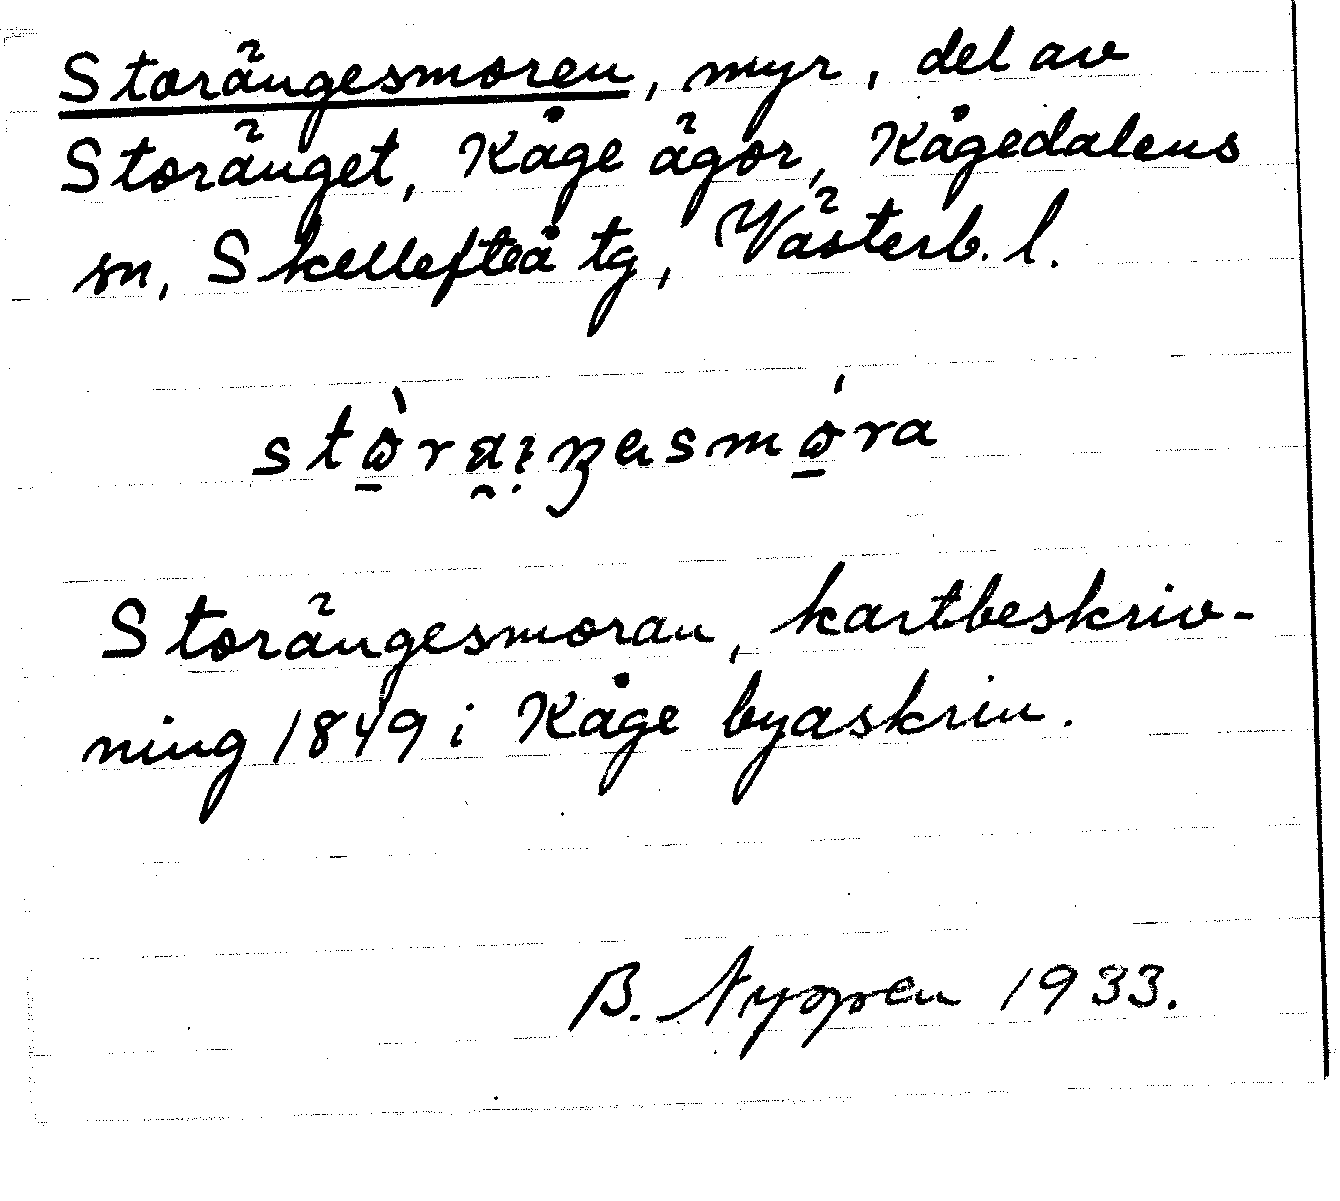 Storängesmoren, myr, del av
Storänget, Kåge ägor, Kågedalens
sn, Skellefteå tg, Västerb. l.
Storängesmoran, kartbeskriv-
ning 1849 i Kåge byaskrin.
B. Nyppen 1933.